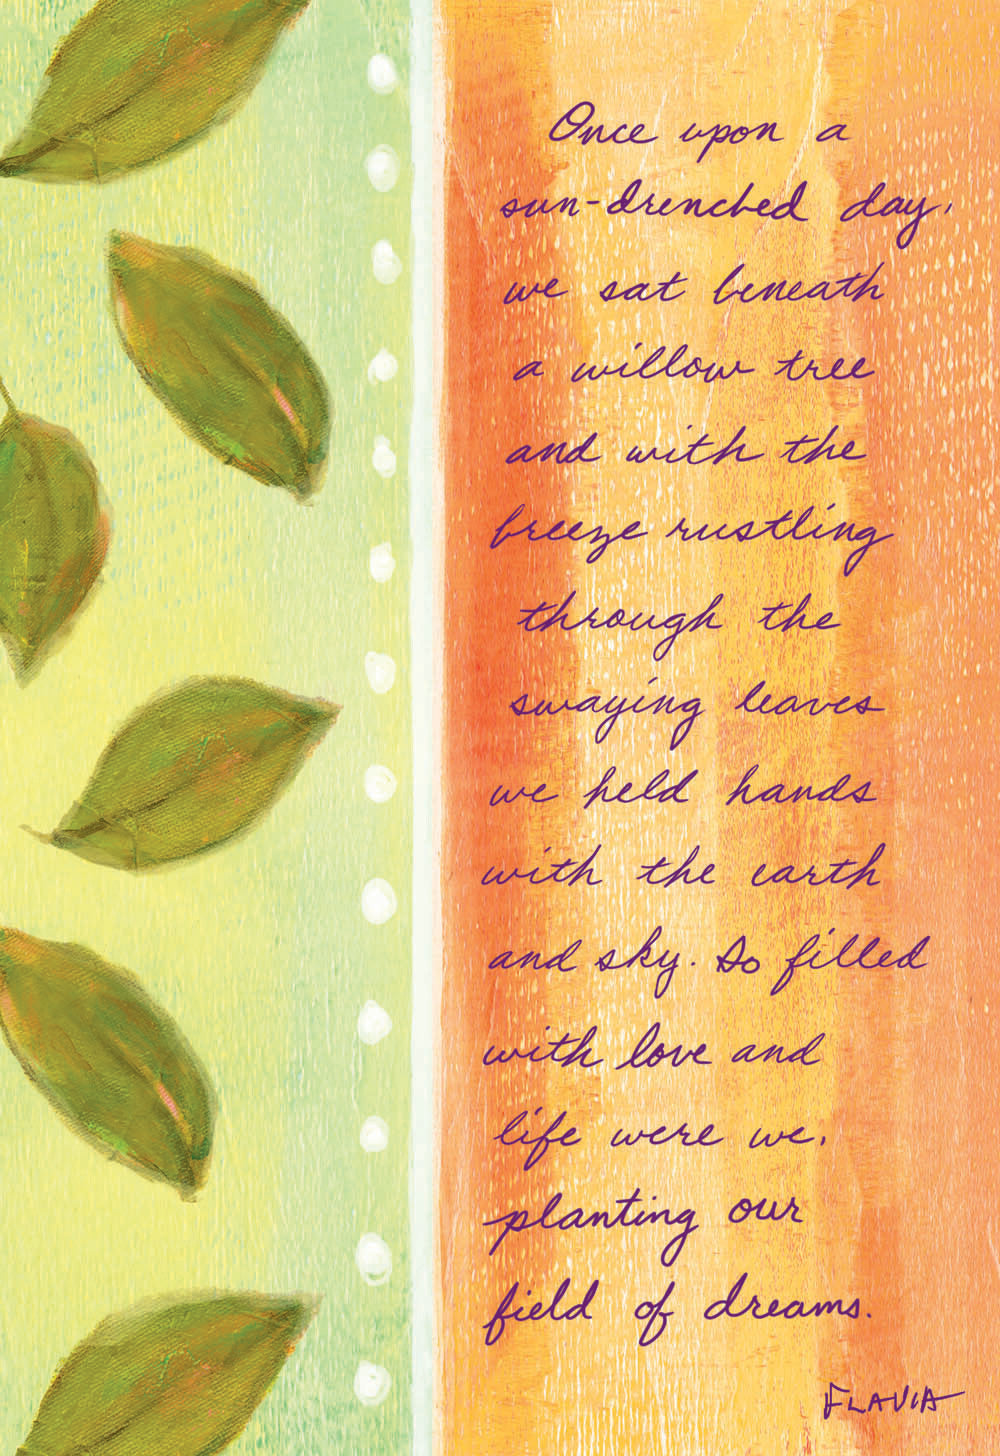 Once upon a
sun-drenched day,
we sat beneath
a willow tree
and with the
breeze rustling
through the
swaying leaves
we held hands
with the earth
and sky. So filled
with love and
life were we,
planting our
field of dreams.
FLAVIA